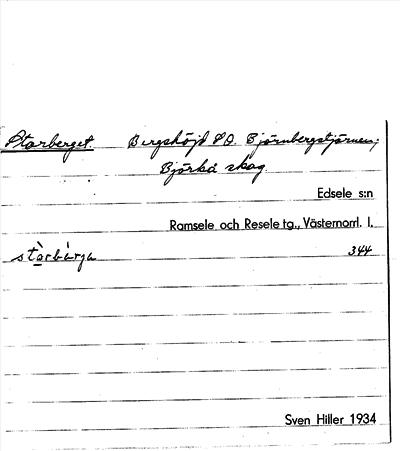 Storberget. Bergshöjd S.O. Björnbergstjärnen;
Björkå skog.
Edsele s:n
Ramsele och Resele tg., Västernorrl. l.
stòrbárja 344
Sven Hiller 1934